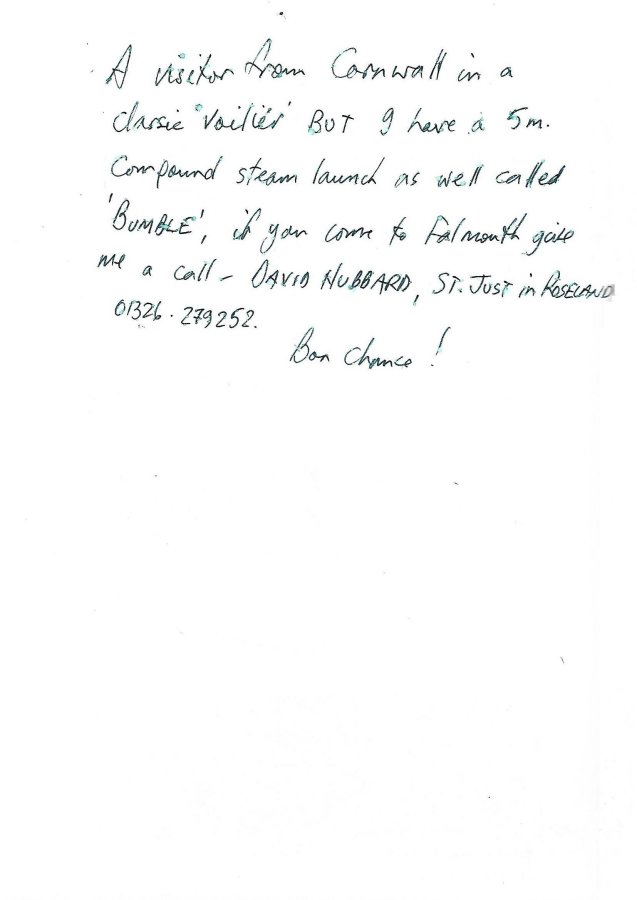 A visitor from Cornwall in a
classic 'Voiliér' BUT I have a 5m.
Compound steam launch as well called
'BUMBLE', if you come to Falmouth give
me a call - DAVID HUBBARD, ST. JUST in ROSELAND
01326.279252.
Bon Chance!